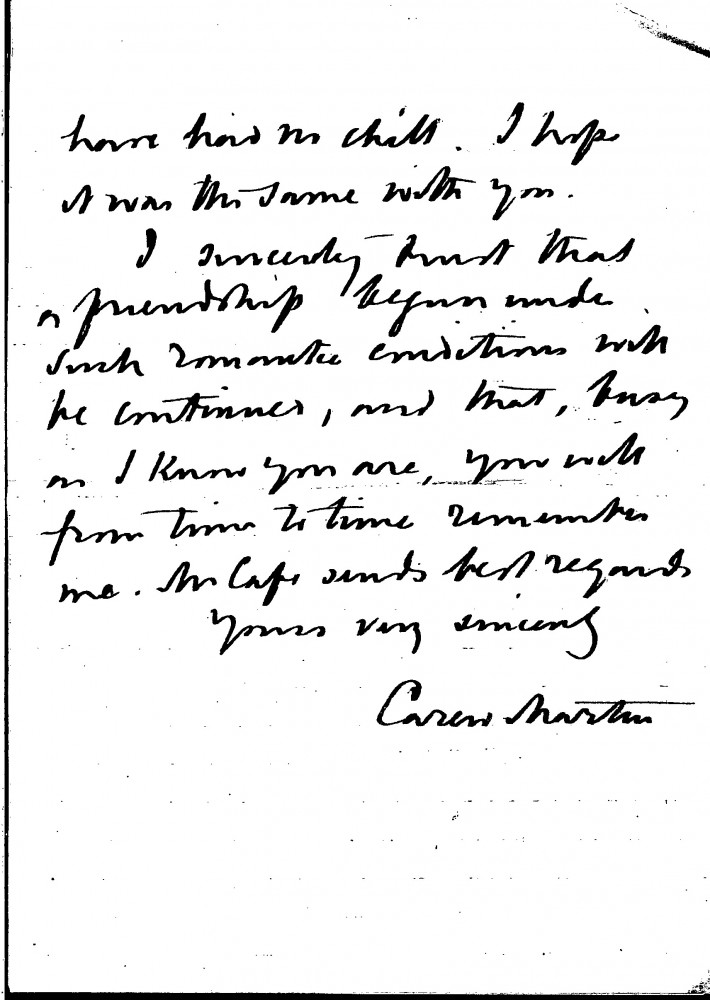 have had no chill. I hope
it was the same with you.
I sincerely trust that
a friendship begun under
such romantic conditions will
be continued, and that, busy
as I know you are, you will
from time to time remember
me. Mr Cape sends best regards
Yours very sincerely
Carew Martin